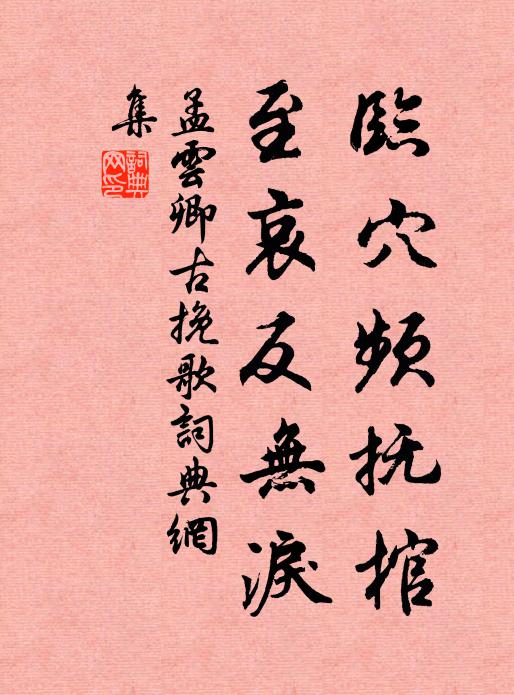 臨穴頻抚棺
至哀反無淚
孟雲卿古挽歌詞典網
集
詞典網印